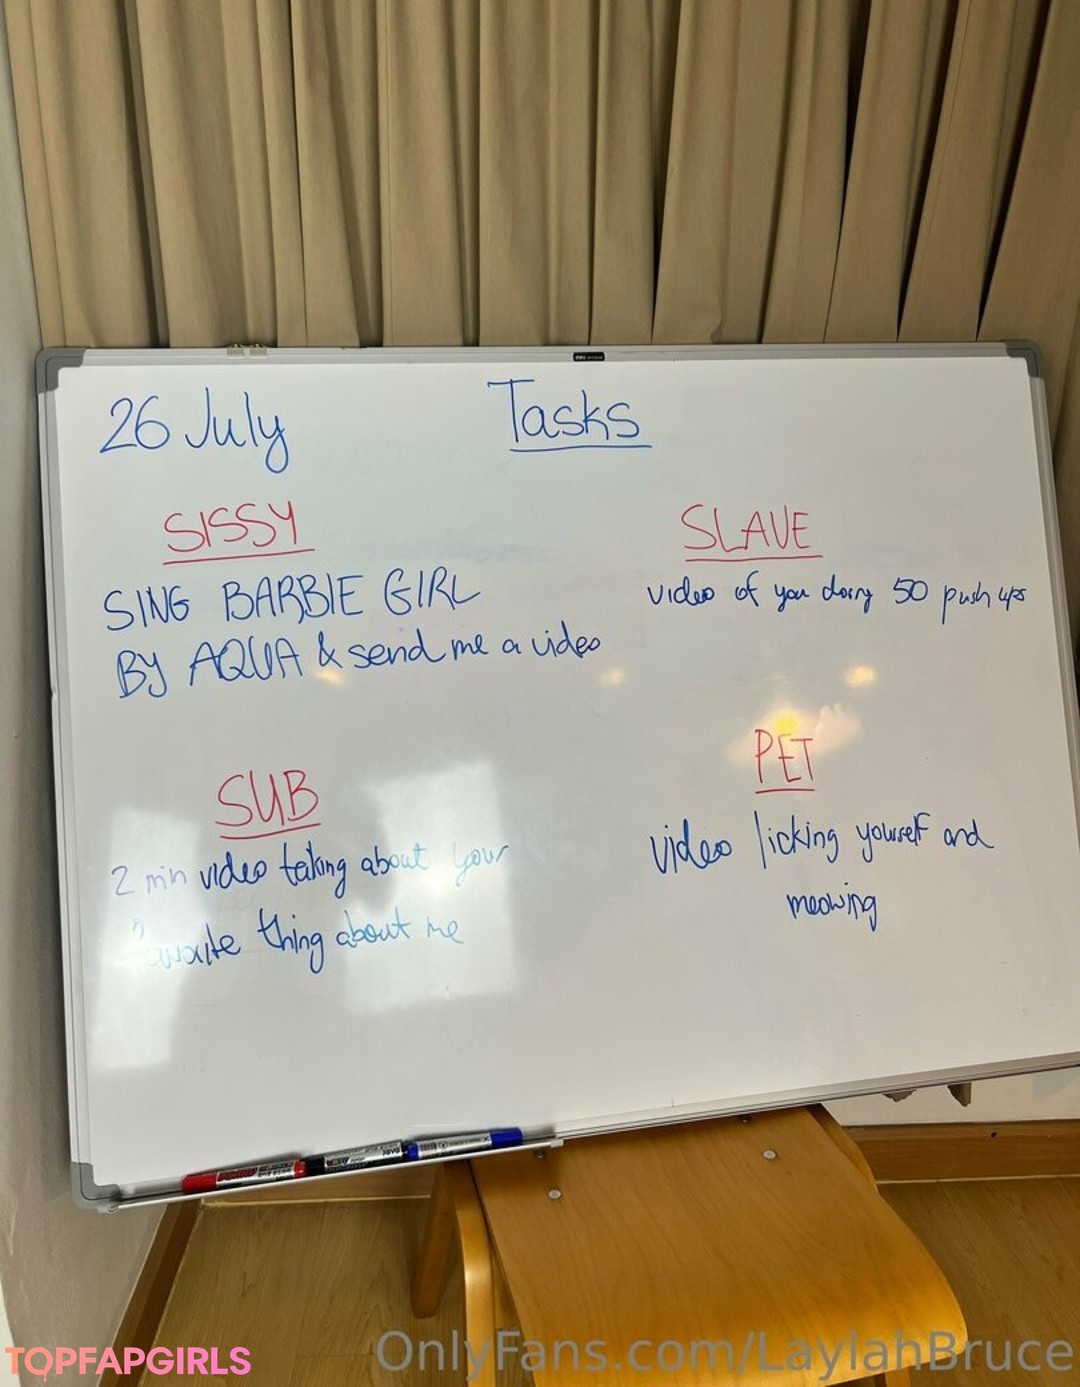 26 July
Tasks
SISSY
SING BARBIE GIRL
BY AQUA & send me a video
SLAVE
video of you doing 50 push ups
SUB
2 min video taking about your
favorite thing about me
PET
video licking yourself and
meowing
TOPFAPGIRLS
OnlyFans.com/LaylahBruce